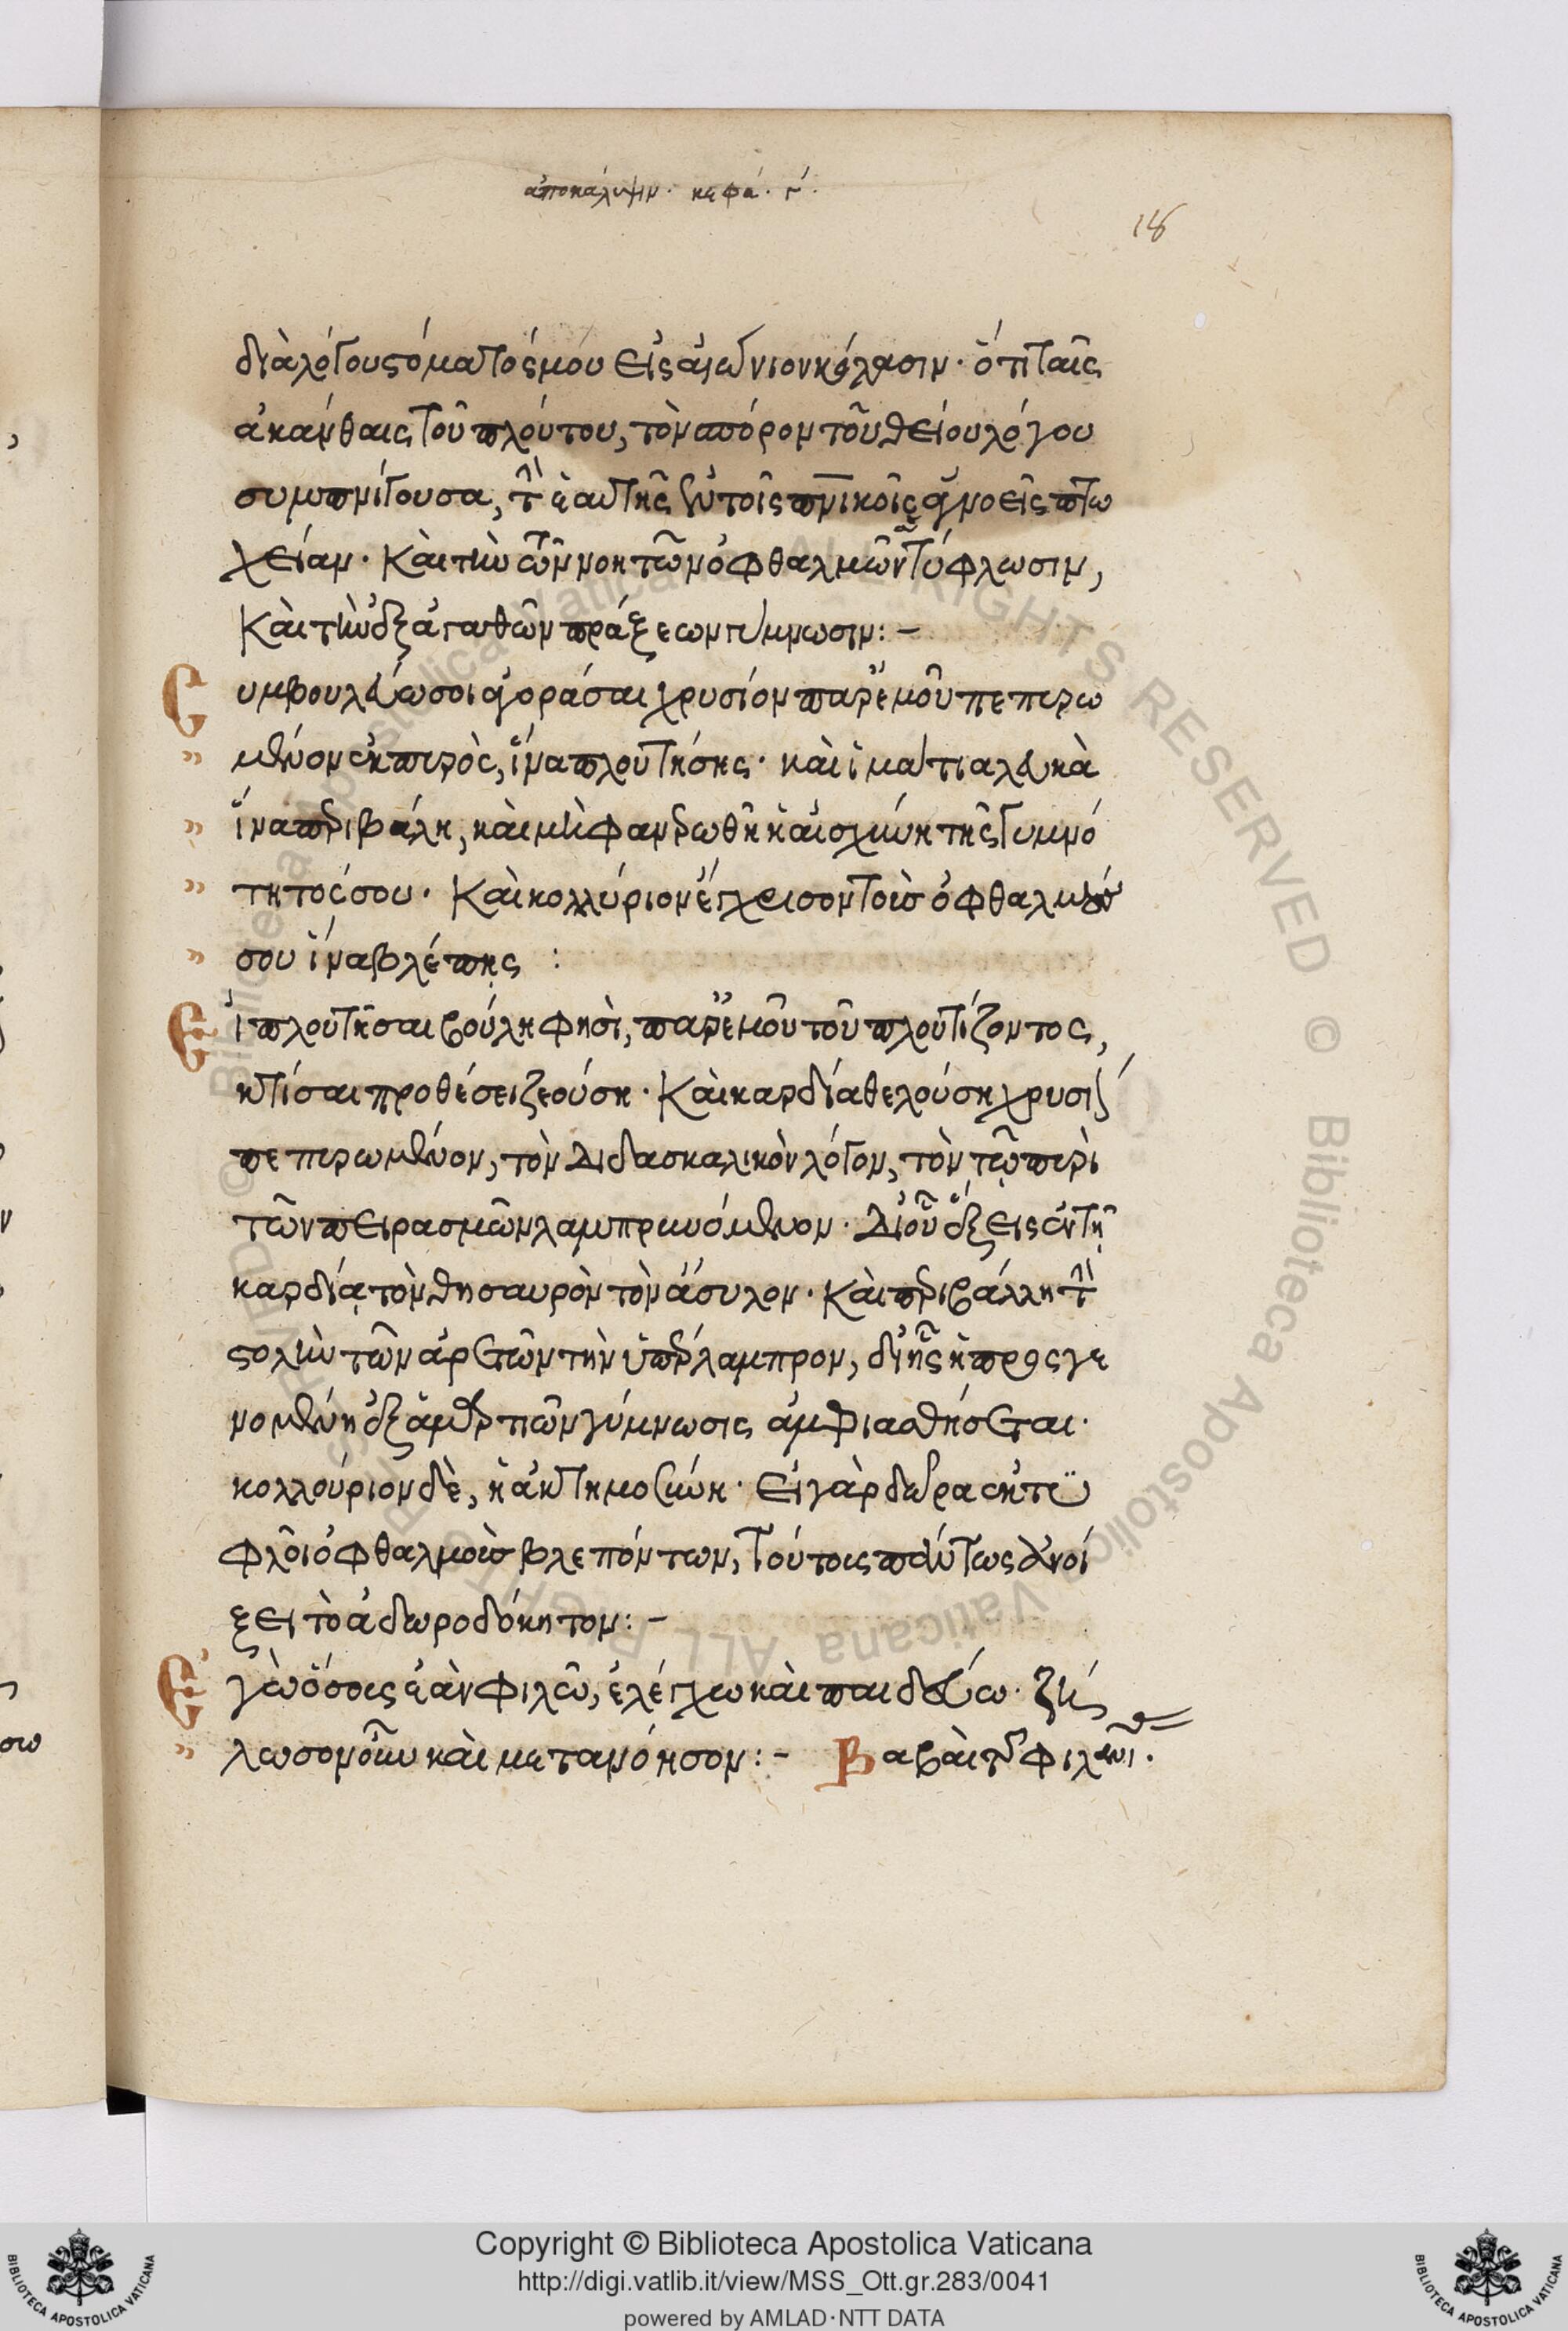 ἀποκάλυψιν. κεφά. γ´.
18
διὰ λόγου στόματός μου εἰς αἰώνιον κόλασιν· ὅτι ταῖς
ἀκάνθαις τοῦ πλούτου, τὸν σπόρον τοῦ θείου λόγου
συμπνίγουσα, τὴν ἑαυτῆς ἐν τοῖς πν̅ικοῖς ἀγνοεῖς πτω
χείαν. Καὶ τὴν τῶν νοητῶν ὀφθαλμῶν τύφλωσιν,
Καὶ τὴν ἐξ ἀγαθῶν πράξεων γύμνωσιν: –
Συμβουλεύω σοι ἀγοράσαι χρυσίον παρ' ἐμοῦ πεπυρω
" μένον ἐκ πυρὸς, ἵνα πλουτήσης· καὶ ἱμάτια λευκὰ
" ἵνα περιβάλη, καὶ μὴ φανερωθῆ ἡ αἰσχύνη τῆς γυμνό
" τητός σου. Καὶ κολλύριον ἔγχρισον τοὺς ὀφθαλμούς
" σου ἵνα βλέπῃς :
Εἰ πλουτῆσαι βούλη φησὶ, παρ' ἐμοῦ τοῦ πλουτίζοντος,
κτίσαι προθέσει ζεούση. Καὶ καρδία θελούση χρυσίον
πεπυρωμένον, τὸν διδασκαλικὸν λόγον, τὸν τῷ πυρὶ
τῶν πειρασμῶν λαμπρυνόμενον. Δι' οὗ ἕξεις ἐν τῇ
καρδίᾳ τὸν θησαυρὸν τὸν ἄσυλον. Καὶ περιβάλλη τὴν
στολὴν τῶν ἀρετῶν τὴν ὑπέρλαμπρον, δι' ἧς ἡ προσγε
νομένη ἐξ ἁμαρτιῶν γύμνωσις ἀμφιασθήσεται.
κολλούριον δὲ, ἡ ἀκτημοσύνη. Εἰ γὰρ δῶρα ἐκτυ
φλοῖ ὀφθαλμοὺς βλεπόντων, τούτους πάντως ἀνοί
ξει τὸ ἀδωροδόκητον: –
Ἐγὼ ὅσους ἐὰν φιλῶ, ἐλέγχω καὶ παιδεύω. ζή
" λωσον οὖν καὶ μετανόησον: – Βαβαὶ τῆς φιλανι.
Copyright © Biblioteca Apostolica Vaticana
http://digi.vatlib.it/view/MSS_Ott.gr.283/0041
powered by AMLAD·NTT DATA